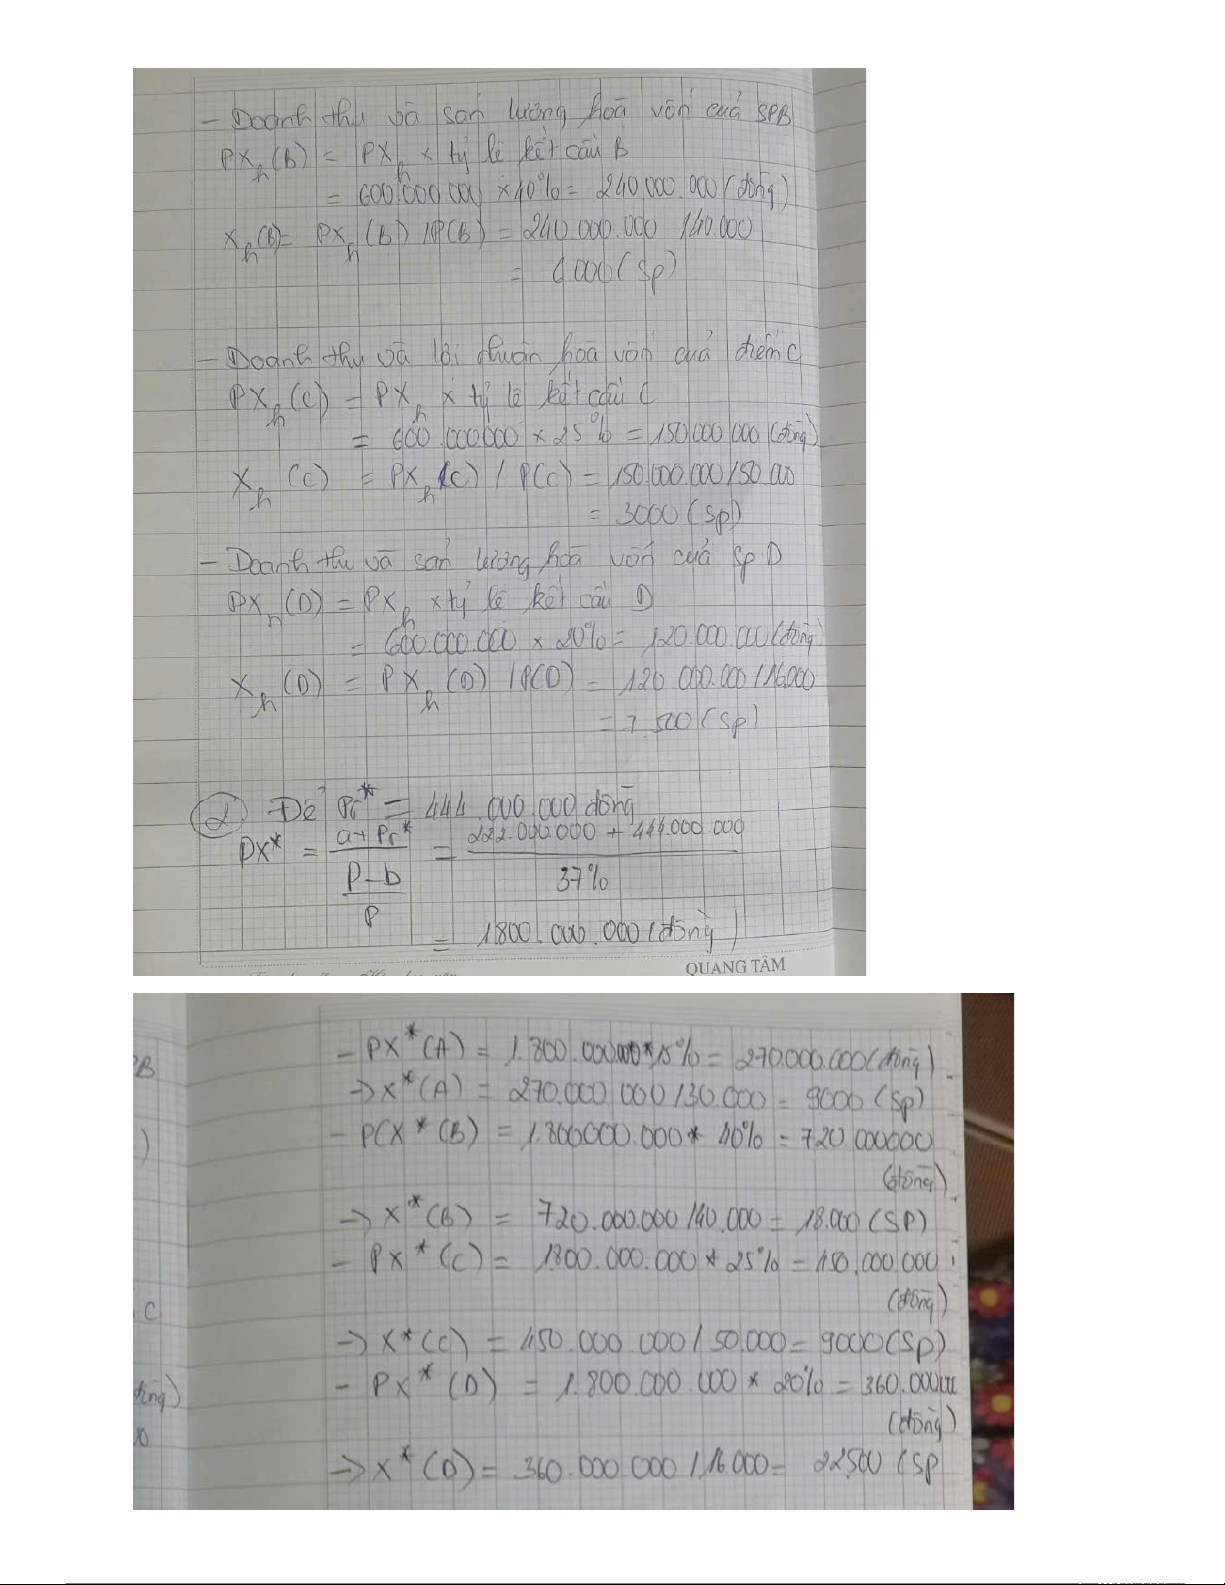 - Doanh thu và sản lượng hoà vốn của SPB
PXh(B) = PXh × tỷ lệ kết cấu B
= 600.000.000 × 40% = 240.000.000 (đồng)
Xh(B) = PXh(B) / P(B) = 240.000.000 / 40.000
= 6000 (sp)
- Doanh thu và lợi nhuận hoà vốn của điểm C
PXh(C) = PXh × tỷ lệ kết cấu C
= 600.000.000 × 25% = 150.000.000 (đồng)
Xh(C) = PXh(C) / P(C) = 150.000.000 / 50.000
= 3000 (sp)
- Doanh thu và sản lượng hoà vốn của sp D
PXh(D) = PXh × tỷ lệ kết cấu D
= 600.000.000 × 20% = 120.000.000 (đồng)
Xh(D) = PXh(D) / P(D) = 120.000.000 / 16.000
= 7.500 (sp)
2) Để Pr* = 444.000.000 đồng
a+Pr* 222.000.000 + 444.000.000
PX* = =
P-b 37%
P
= 1800.000.000 (đồng)
QUANG TÂM
- PX*(A) = 1.800.000.000 * 15% = 270.000.000 (đồng)
B
→ X*(A) = 270.000.000 / 30.000 = 9000 (sp)
- P(X*(B) = 1.800000.000 * 40% = 720.000000
)
(đồng)
→ X*(B) = 720.000.000 / 40.000 = 18.000 (SP)
- PX*(C) = 1800.000.000 * 25% = 450.000.000
(đồng)
C
→ X*(C) = 450.000.000 / 50.000 = 9000 (sp)
- PX*(D) = 1.800.000.000 * 20% = 360.000.000
(đồng)
→ X*(D) = 360.000.000 / 16.000 = 22500 (sp